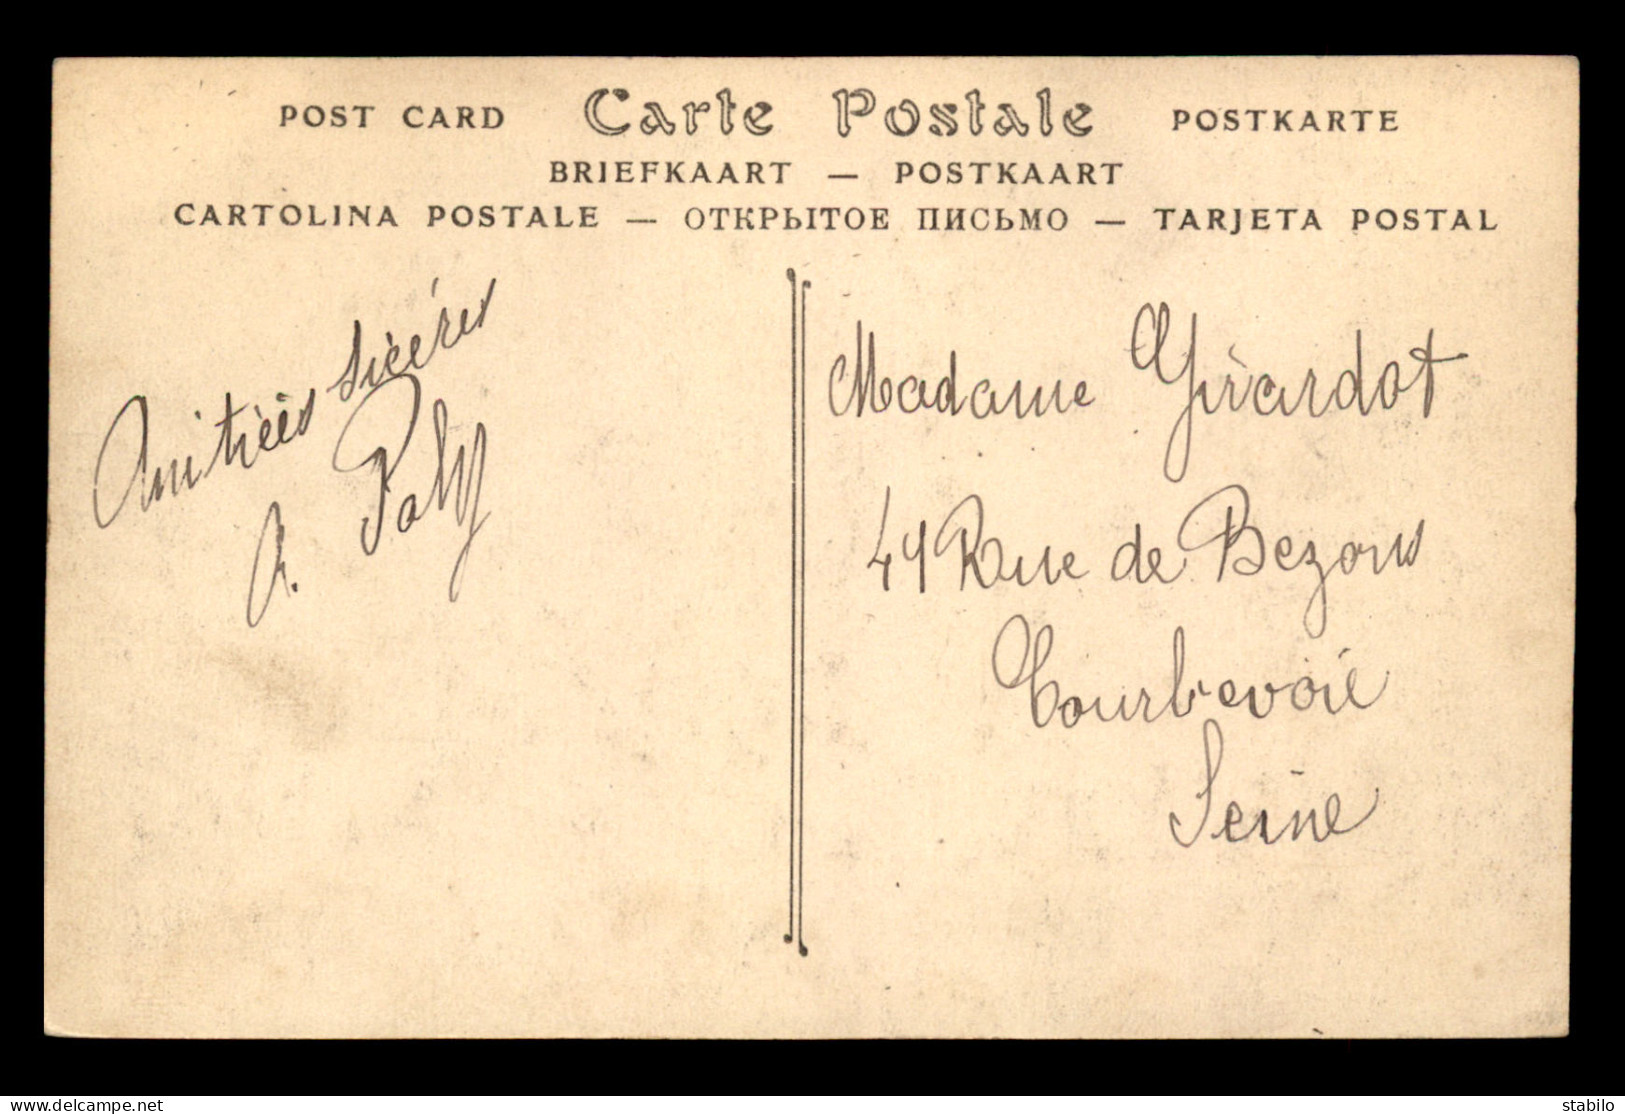 POST CARD Carte Postale POSTKARTE
BRIEFKAART — POSTKAART
CARTOLINA POSTALE — ОТКРЫТОЕ ПИСЬМО — TARJETA POSTAL
Amitiées sicéres
A. Poly
Madame Girardot
41 Rue de Bezons
Courbevoie
Seine
delcampe.net
stabilo